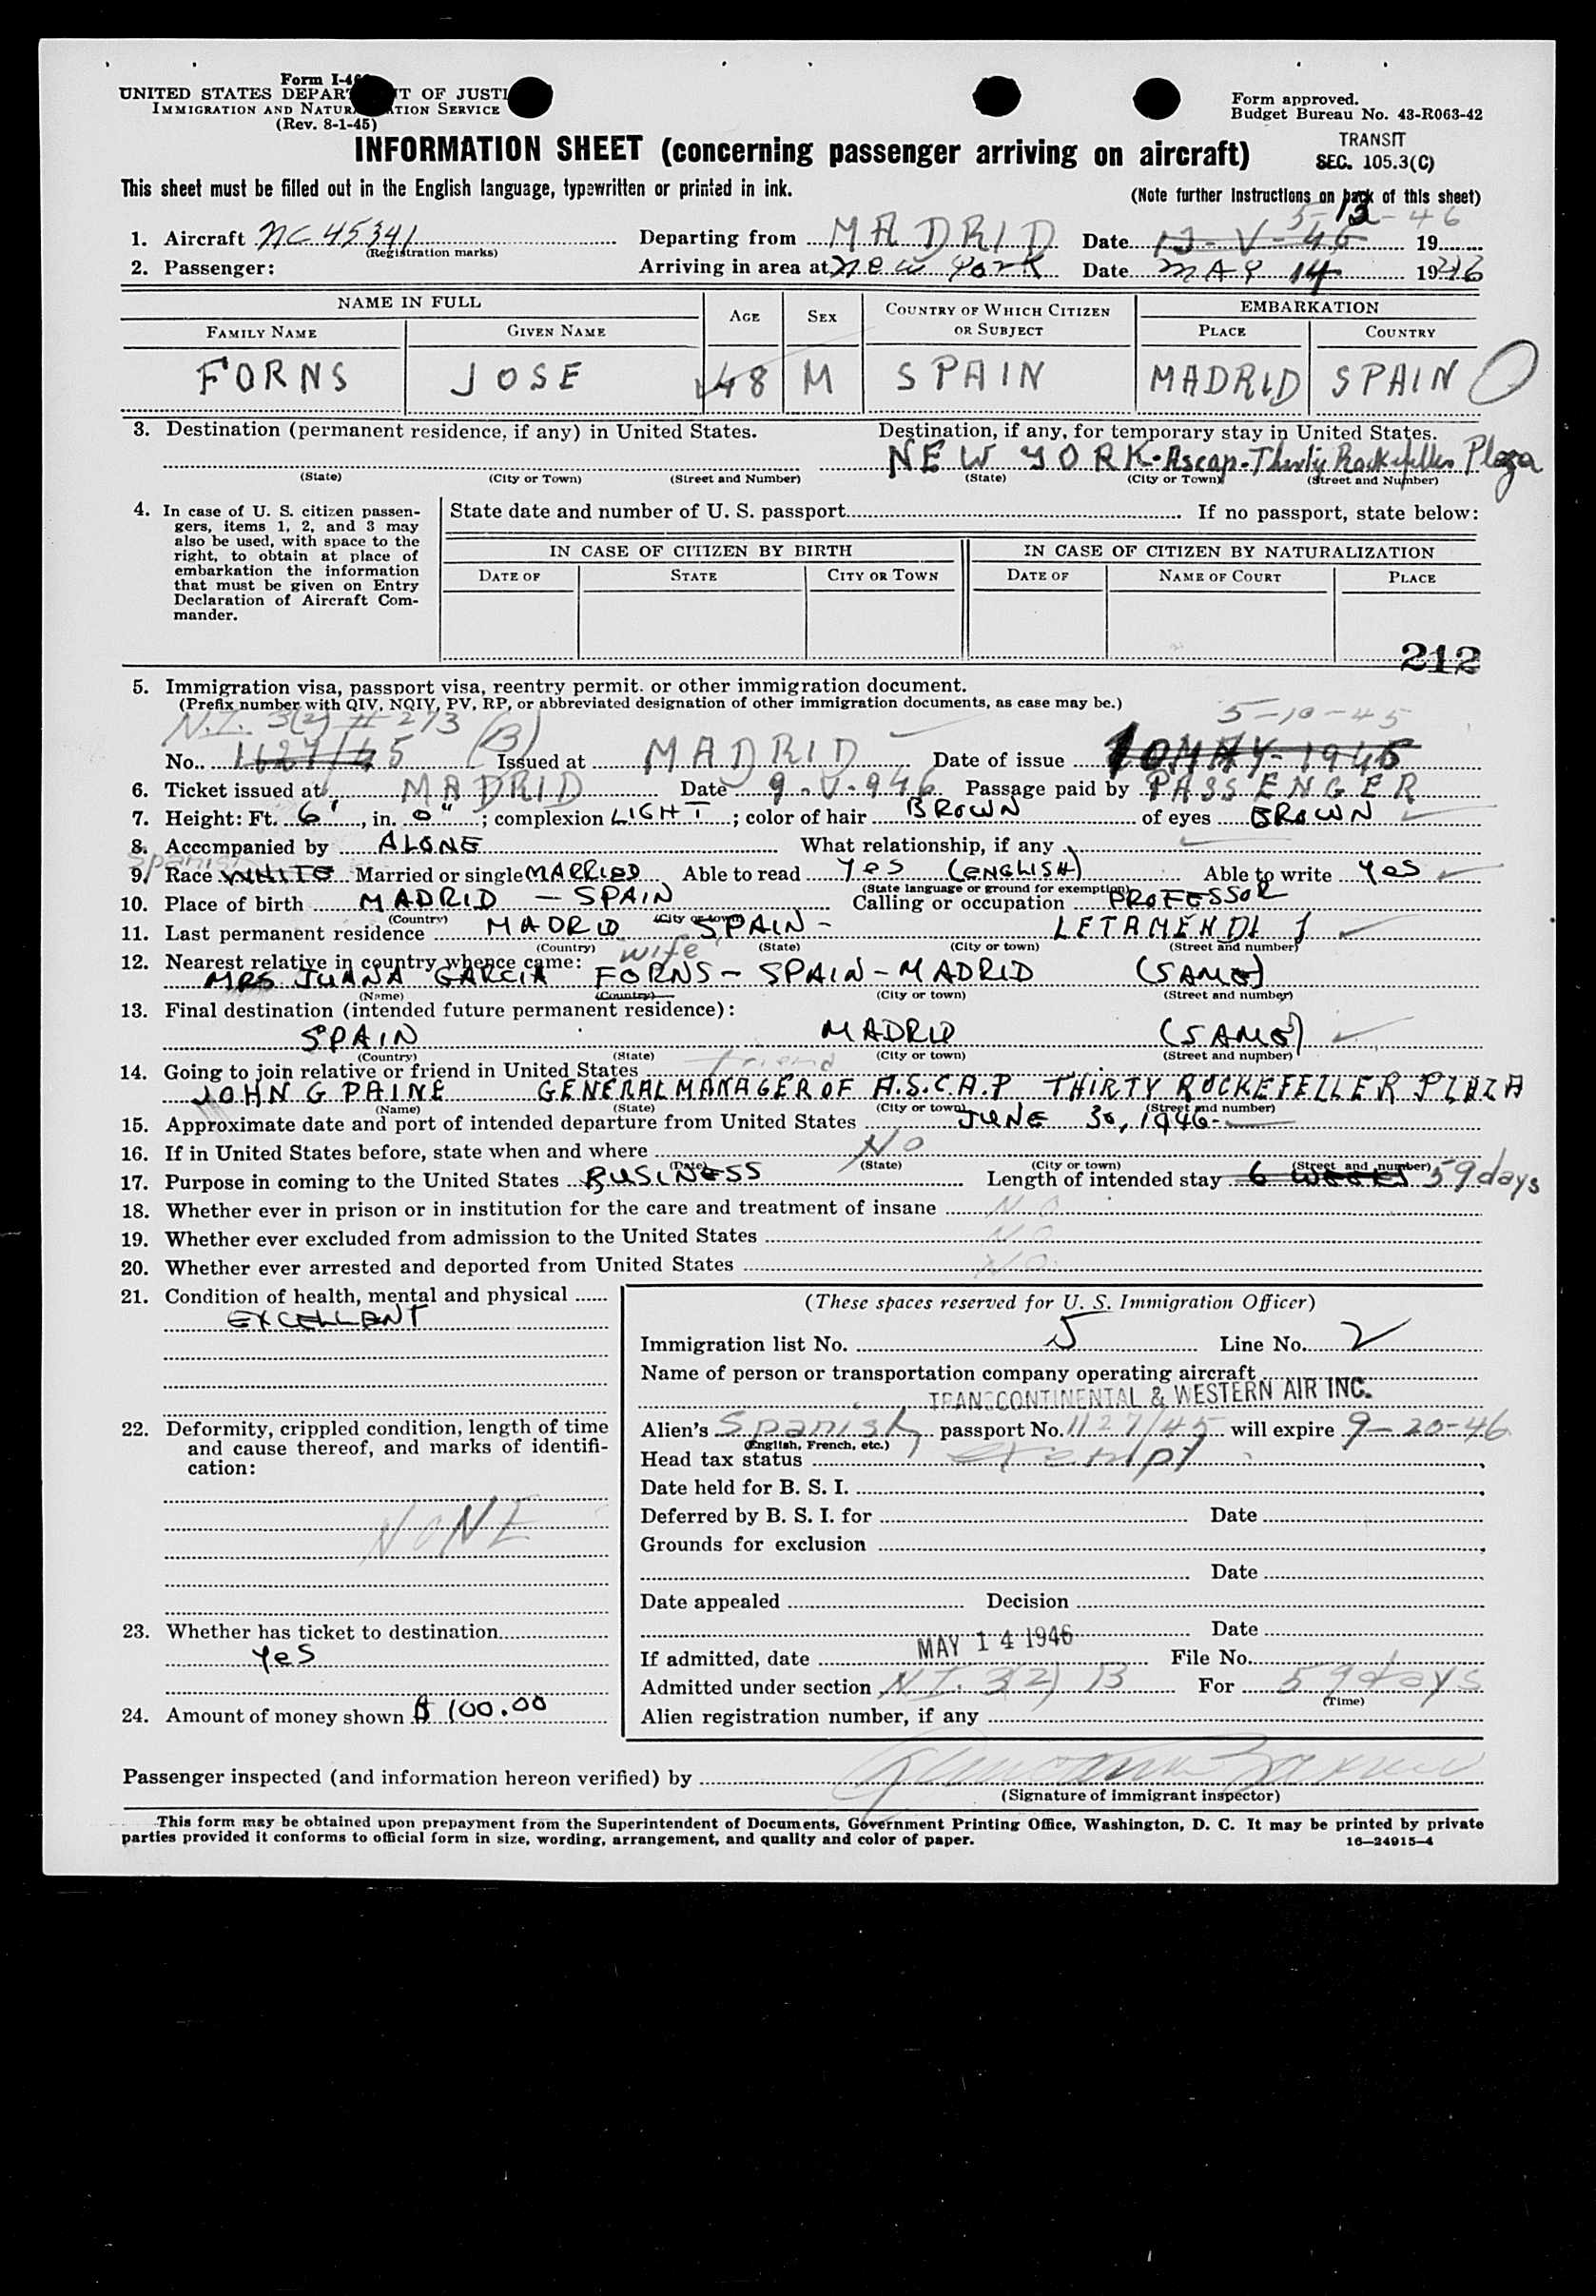 Form I-4
UNITED STATES DEPAR T OF JUSTI
IMMIGRATION AND NATUR TION SERVICE
(Rev. 8-1-45)
Form approved.
Budget Bureau No. 43-R063-42
TRANSIT
SEC. 105.3(C)
INFORMATION SHEET (concerning passenger arriving on aircraft)
This sheet must be filled out in the English language, typewritten or printed in ink.
(Note further instructions on back of this sheet)
5-13-46
1. Aircraft NC 45341 Departing from MADRID Date 12-V-46 19
(Registration marks)
2. Passenger: Arriving in area at New York Date MAY 14 1946
NAME IN FULL AGE SEX COUNTRY OF WHICH CITIZEN OR SUBJECT EMBARKATION
FAMILY NAME GIVEN NAME PLACE COUNTRY
FORNS JOSE 48 M SPAIN MADRID SPAIN
3. Destination (permanent residence, if any) in United States. Destination, if any, for temporary stay in United States.
NEW YORK-Ascap-Thirty Rockefeller Plaza
(State) (City or Town) (Street and Number) (State) (City or Town) (Street and Number)
4. In case of U. S. citizen passen-
gers, items 1, 2, and 3 may
also be used, with space to the
right, to obtain at place of
embarkation the information
that must be given on Entry
Declaration of Aircraft Com-
mander.
State date and number of U. S. passport If no passport, state below:
IN CASE OF CITIZEN BY BIRTH IN CASE OF CITIZEN BY NATURALIZATION
DATE OF STATE CITY OR TOWN DATE OF NAME OF COURT PLACE
212
5. Immigration visa, passport visa, reentry permit. or other immigration document.
(Prefix number with QIV, NQIV, PV, RP, or abbreviated designation of other immigration documents, as case may be.)
N.I. 3(2) # 273 (B) 5-10-45
No. 1627/45 Issued at MADRID Date of issue 10 MAY-1946
6. Ticket issued at MADRID Date 9-V-946 Passage paid by PASSENGER
7. Height: Ft. 6', in. 0"; complexion LIGHT; color of hair BROWN of eyes BROWN
8. Accompanied by ALONE What relationship, if any
Spanish
9. Race WHITE Married or single MARRIED Able to read YES (ENGLISH) Able to write YES
(State language or ground for exemption)
10. Place of birth MADRID - SPAIN Calling or occupation PROFESSOR
(Country) (City or town)
11. Last permanent residence MADRID SPAIN - LETAMENDI 1
(Country) (State) (City or town) (Street and number)
12. Nearest relative in country whence came: wife
MRS JUANA GARCIA FORNS - SPAIN - MADRID (SAME)
(Name) (Country) (City or town) (Street and number)
13. Final destination (intended future permanent residence):
SPAIN MADRID (SAME)
(Country) (State) (City or town) (Street and number)
14. Going to join relative or friend in United States friend
JOHN G PAINE GENERAL MANAGER OF A.S.C.A.P THIRTY ROCKEFELLER PLAZA
(Name) (State) (City or town) (Street and number)
15. Approximate date and port of intended departure from United States JUNE 30, 1946-
16. If in United States before, state when and where NO
(Date) (State) (City or town) (Street and number)
17. Purpose in coming to the United States BUSINESS Length of intended stay 6 WEEKS 59 days
18. Whether ever in prison or in institution for the care and treatment of insane NO
19. Whether ever excluded from admission to the United States NO
20. Whether ever arrested and deported from United States NO
21. Condition of health, mental and physical
EXCELLENT
22. Deformity, crippled condition, length of time
and cause thereof, and marks of identifi-
cation:
NONE
23. Whether has ticket to destination
YES
24. Amount of money shown $ 100.00
(These spaces reserved for U. S. Immigration Officer)
Immigration list No. 5 Line No. 2
Name of person or transportation company operating aircraft
TRANSCONTINENTAL & WESTERN AIR INC.
Alien's Spanish passport No. 1127/45 will expire 9-20-46
(English, French, etc.)
Head tax status exempt
Date held for B. S. I.
Deferred by B. S. I. for Date
Grounds for exclusion
Date
Date appealed Decision
Date
If admitted, date MAY 14 1946 File No.
Admitted under section N.I. 3(2) B For 59 days
(Time)
Alien registration number, if any
Passenger inspected (and information hereon verified) by
(Signature of immigrant inspector)
This form may be obtained upon prepayment from the Superintendent of Documents, Government Printing Office, Washington, D. C. It may be printed by private
parties provided it conforms to official form in size, wording, arrangement, and quality and color of paper. 16-24915-4